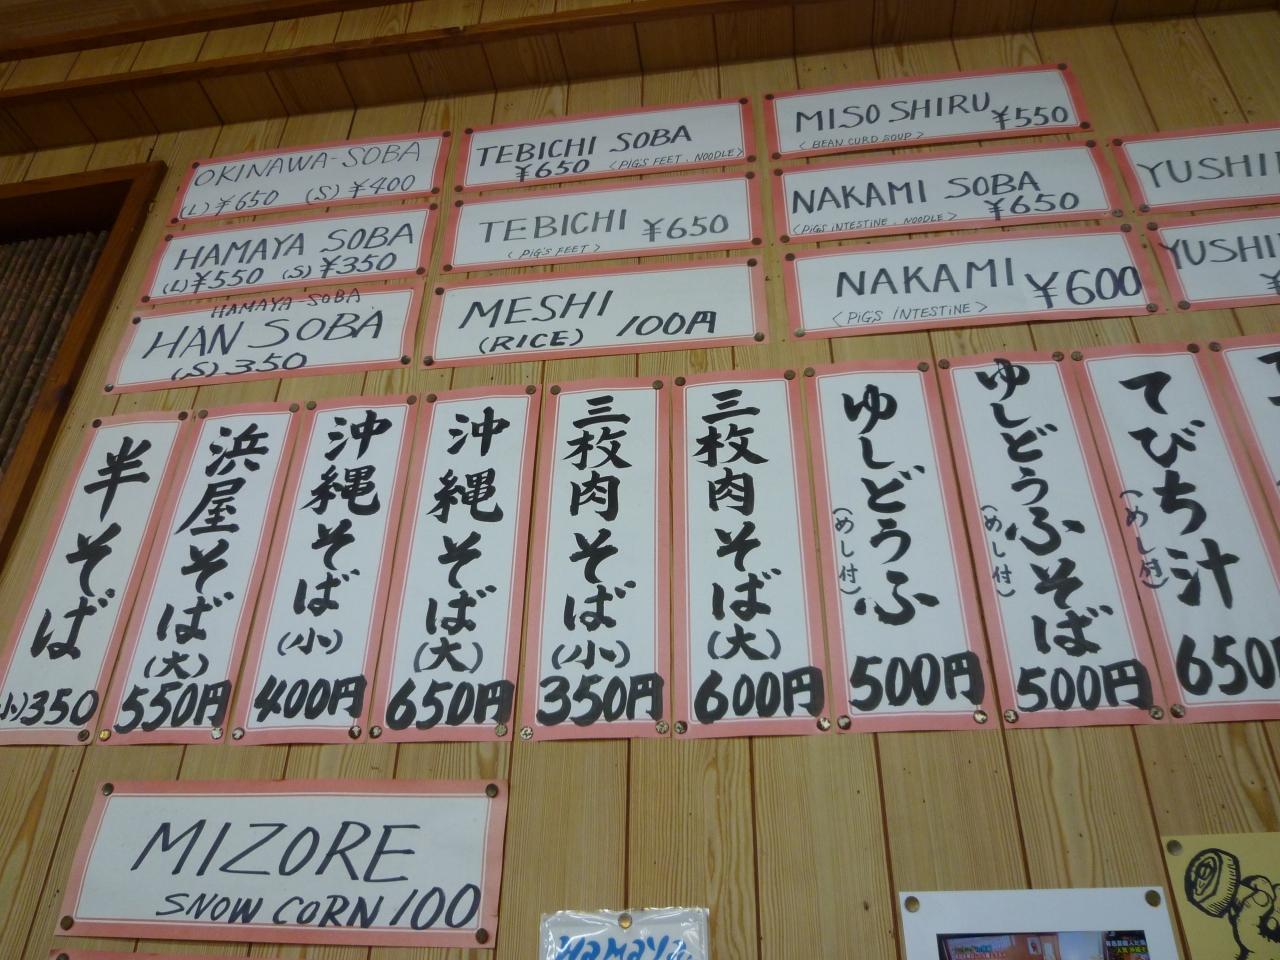 OKINAWA-SOBA
(L) ¥650 (S) ¥400
HAMAYA SOBA
(L) ¥550 (S) ¥350
HAMAYA-SOBA
HAN SOBA
(S) 350
TEBICHI SOBA
¥650 <PIG'S FEET. NOODLE>
TEBICHI ¥650
<PIG'S FEET>
MESHI
(RICE) 100円
MISO SHIRU ¥550
<BEAN CURD SOUP>
NAKAMI SOBA
<PIG'S INTESTINE. NOODLE> ¥650
NAKAMI ¥600
<PIG'S INTESTINE>
YUSHI
YUSHI
¥
半そば
(小)350
浜屋そば
(大)
550円
沖縄そば
(小)
400円
沖縄そば
(大)
650円
三枚肉そば
(小)
350円
三枚肉そば
(大)
600円
ゆしどうふ
(めし付)
500円
ゆしどうふそば
(めし付)
500円
てびち汁
(めし付)
650
MIZORE
SNOW CORN 100
Hamaya